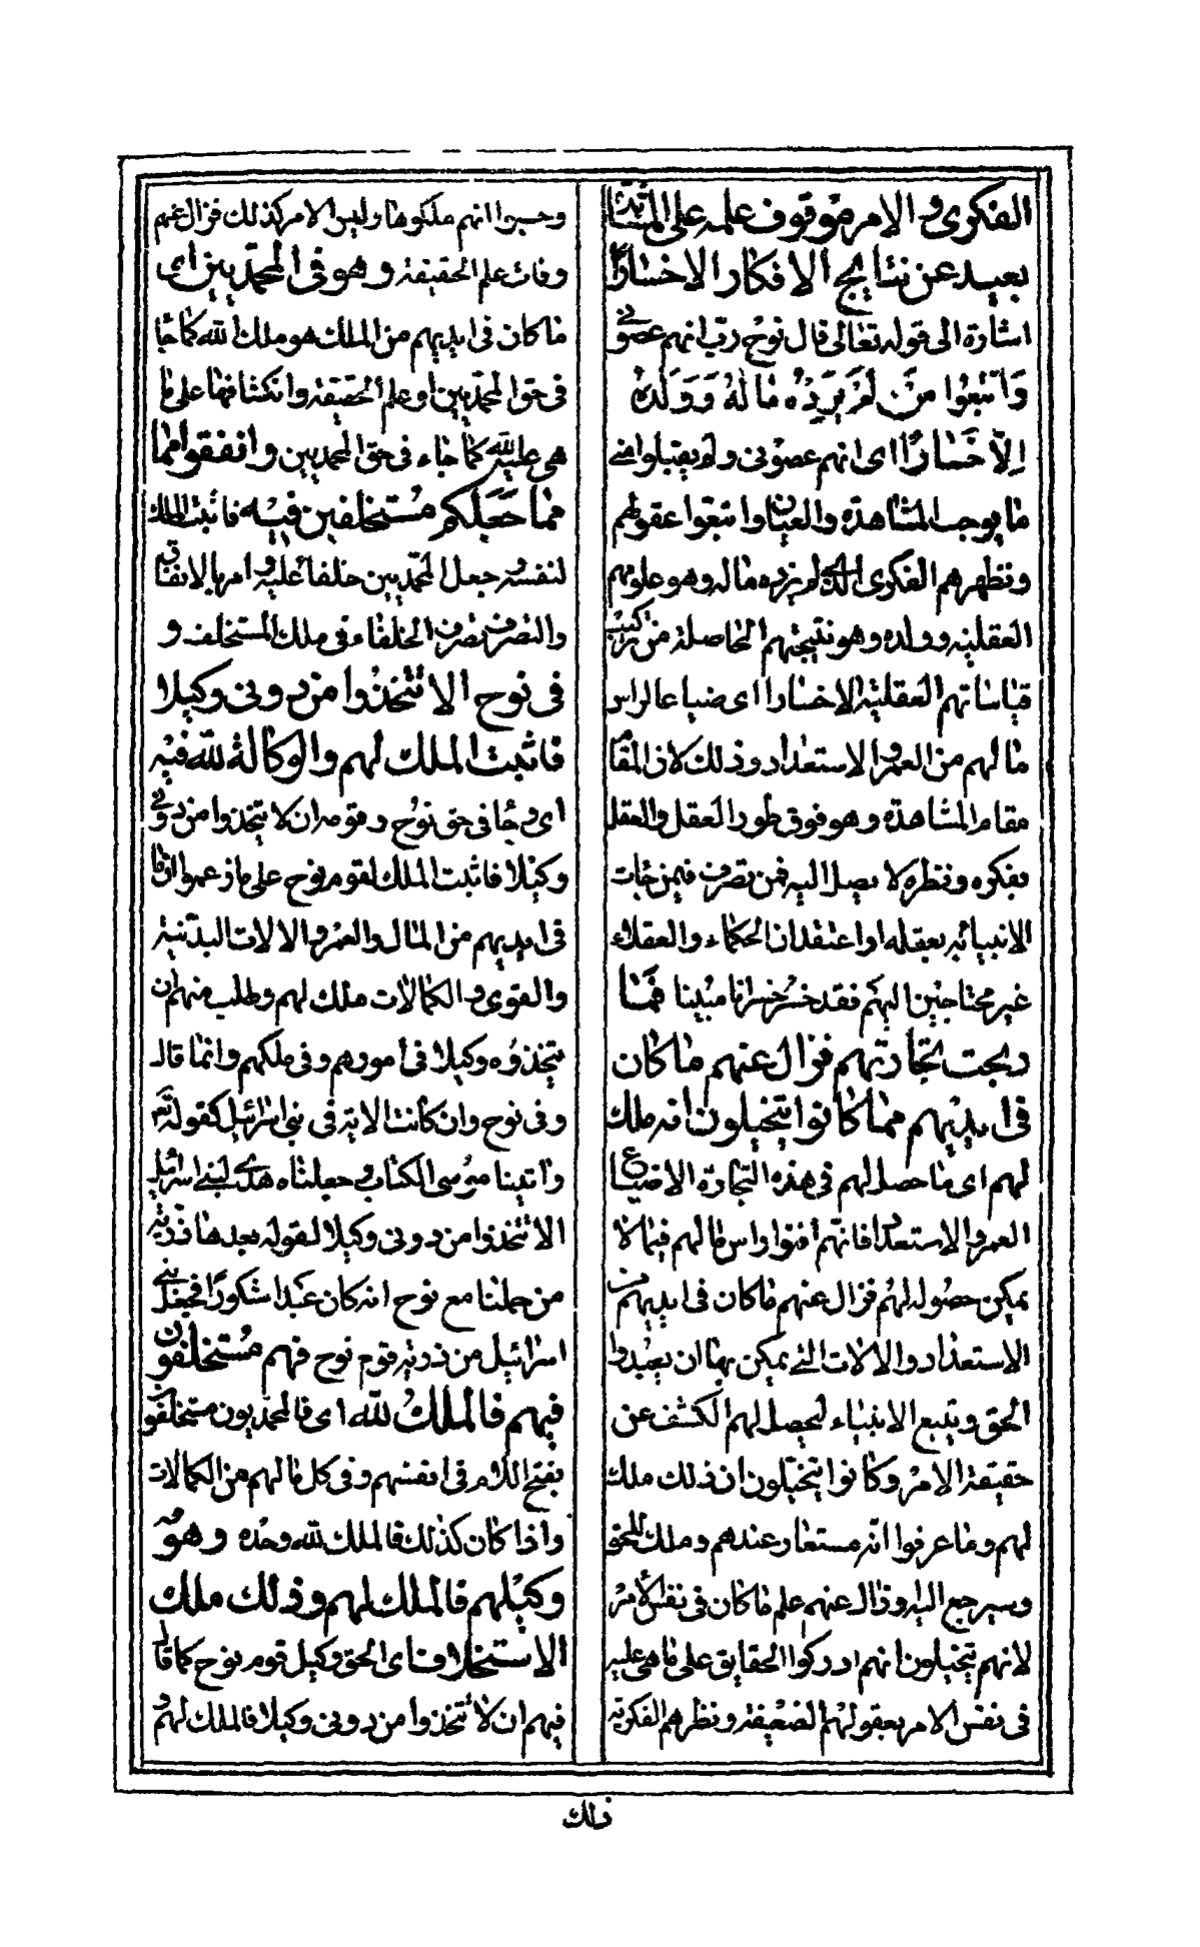 الفكرى والامر موقوف علمه على المشاهدة
بعيد عن نتايج الافكار الا خسارا
اشارة الى قوله تعالى قال نوح رب انهم عصونى
وَاتبعوا مَن لَم يَزِدْهُ مَالُهُ وَوَلَدُهُ
اِلّا خَسَارًا اى انهم عصونى ولم يقبلوا منى
ما يوجب المشاهدة والعيان واتبعوا عقولهم
ونظرهم الفكرى الذى لم يزده ماله وهو علومهم
العقلية وولده وهو نتيجتهم الحاصلة من تركيب
قياساتهم العقلية الا خسارا اى ضياعا لراس
ما لهم من العمر والاستعداد وذلك لان المقام
مقام المشاهدة وهو فوق طور العقل والعقل
بفكره ونظره لا يصل اليه فمن تصرف فيمن جاءت
الانبياء به بعقله او اعتقد ان الحكماء والعقلاء
غير محتاجين اليهم فقد خسر خسرانا مبينا فما
ربحت تجارتهم فزال عنهم ما كان
فى ايديهم مما كانوا يتخيلون انه ملك
لهم اى ما حصل لهم فى هذه التجارة الا ضياع
العمر والاستعداد فانهم افنوا راس مالهم فيما لا
يمكن حصوله لهم فزال عنهم ما كان فى ايديهم من
الاستعداد والالات التى يمكن بها ان يعبدوا
الحق ويتبع الانبياء ليحصل لهم الكشف عن
حقيقة الامر وكانوا يتخيلون ان ذلك ملك
لهم وما عرفوا انه مستعار عندهم وملك للحق
وسيرجع اليه وزال عنهم علم ما كان فى نفس الأمر
لانهم يتخيلون انهم ادركوا الحقايق على ما هى عليه
فى نفس الامر بعقولهم الضعيفة ونظرهم الفكرية
وحسبوا انهم ملكوها وليس الامر كذلك فزال عنهم
وفات علم الحقيقة وهو فى المحمديين اى
ما كان فى ايديهم من الملك هو ملك الله كما جا
فى حق المحمديين او علم الحقيقة وانكشافها على ما
هى عليه لله كما جاء فى حق المحمديين وانفقوا مما
مما جَعَلكم مُستخلفين فيه فاثبت الملك
لنفسه وجعل المحمديين خلفا عليه وامرها بالانفاق
والتصرف تصرف الخلفاء فى ملك المستخلف و
فى نوح الا تتخذوا من دونى وكيلا
فاثبت الملك لهم والوكالة لله فيه
اى وجا فى حق نوح وقومه ان لا تتخذوا من دونى
وكيلا فاثبت الملك لقوم نوح على ما زعموا ان ما
فى ايديهم من المال والعمر والالات البدنية
والقوى والكمالات ملك لهم وطلب منهم ان
يتخذوه وكيلا فى أمورهم وفى ملكهم وانما قال
وفى نوح وان كانت الاية فى بنى اسرائيل كقوله تعا
واتينا موسى الكتاب وجعلناه هدى لبنى اسرائيل
الا تتخذوا من دونى وكيلا لقوله بعدها ذرية
من حملنا مع نوح انه كان عبدا شكورًا فجعل بنى
اسرائيل من ذرية قوم نوح فهم مُستخلفون
فيهم فالملكُ لله اى فالمحمديون مستخلفون
بفتح اللام فى انفسهم وفى كل ما لهم من الكمالات
واذا كان كذلك فالملك لله وحده وهو
وكيلهم فالملك لهم وذلك ملك
الاستخلاف اى الحق وكيل قوم نوح كما قال
فيهم ان لا تتخذوا من دونى وكيلا فالملك لهم
ذلك